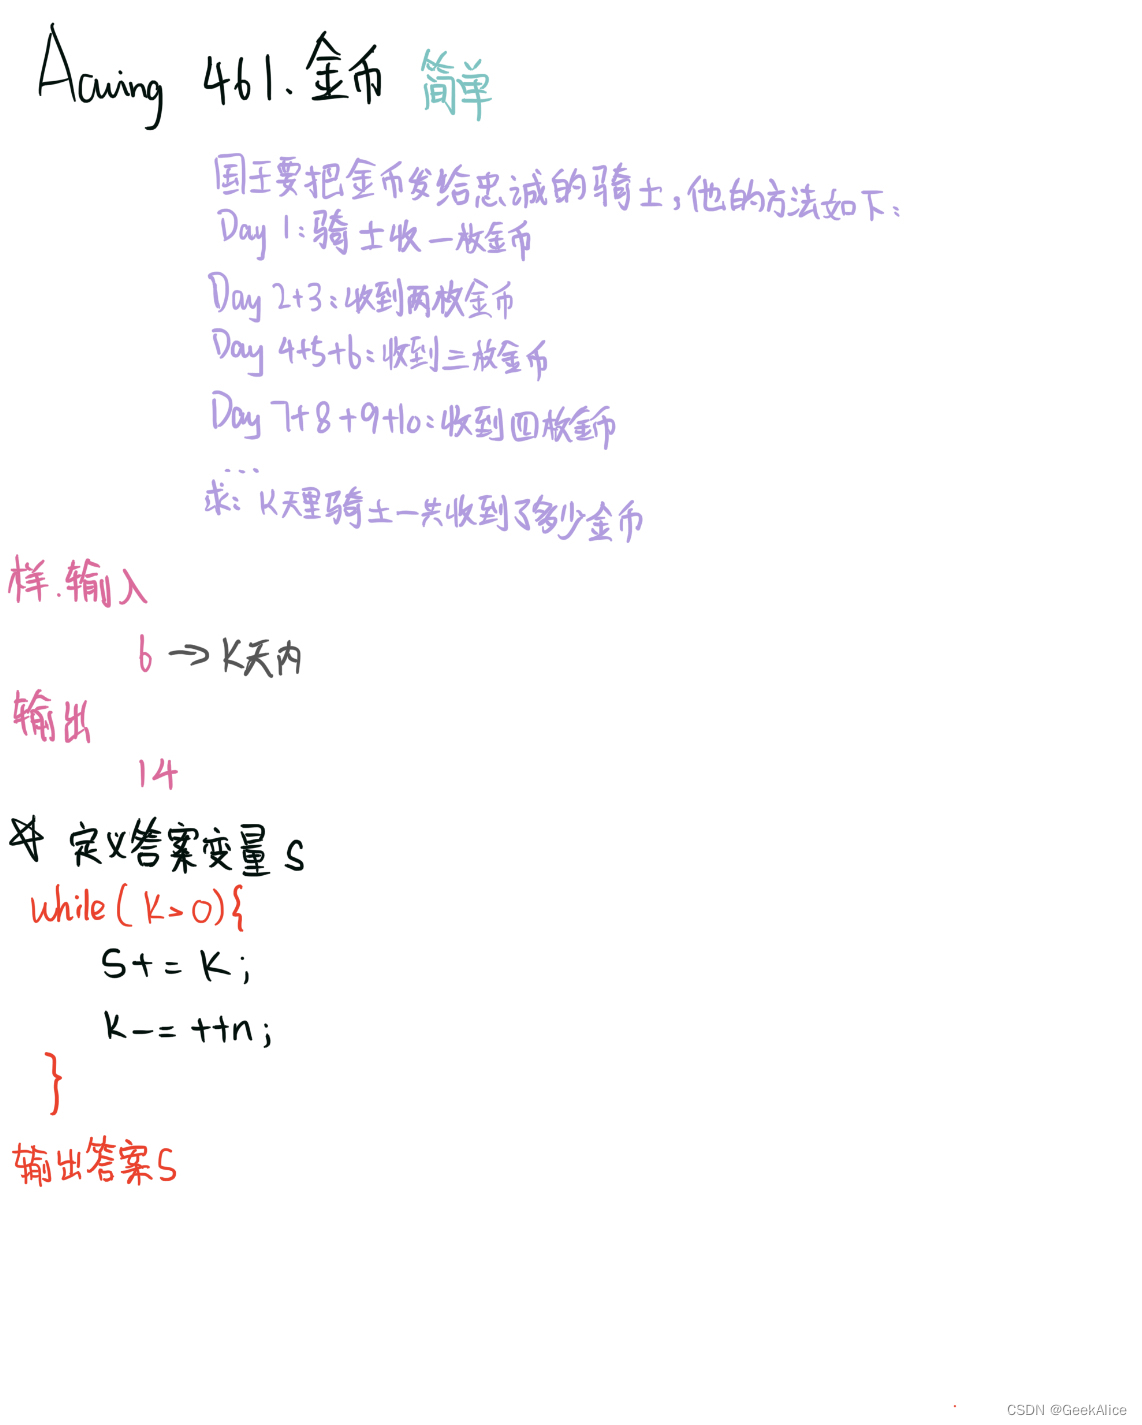 Acwing 461.金币 简单
国王要把金币发给忠诚的骑士,他的方法如下:
Day 1:骑士收一枚金币
Day 2+3:收到两枚金币
Day 4+5+6:收到三枚金币
Day 7+8+9+10:收到四枚金币
...
求:K天里骑士一共收到了多少金币
样.输入
6 → K天内
输出
14
☆ 定义答案变量 S
while(K>0){
S+=K;
K-=++n;
}
输出答案S
CSDN @GeekAlice